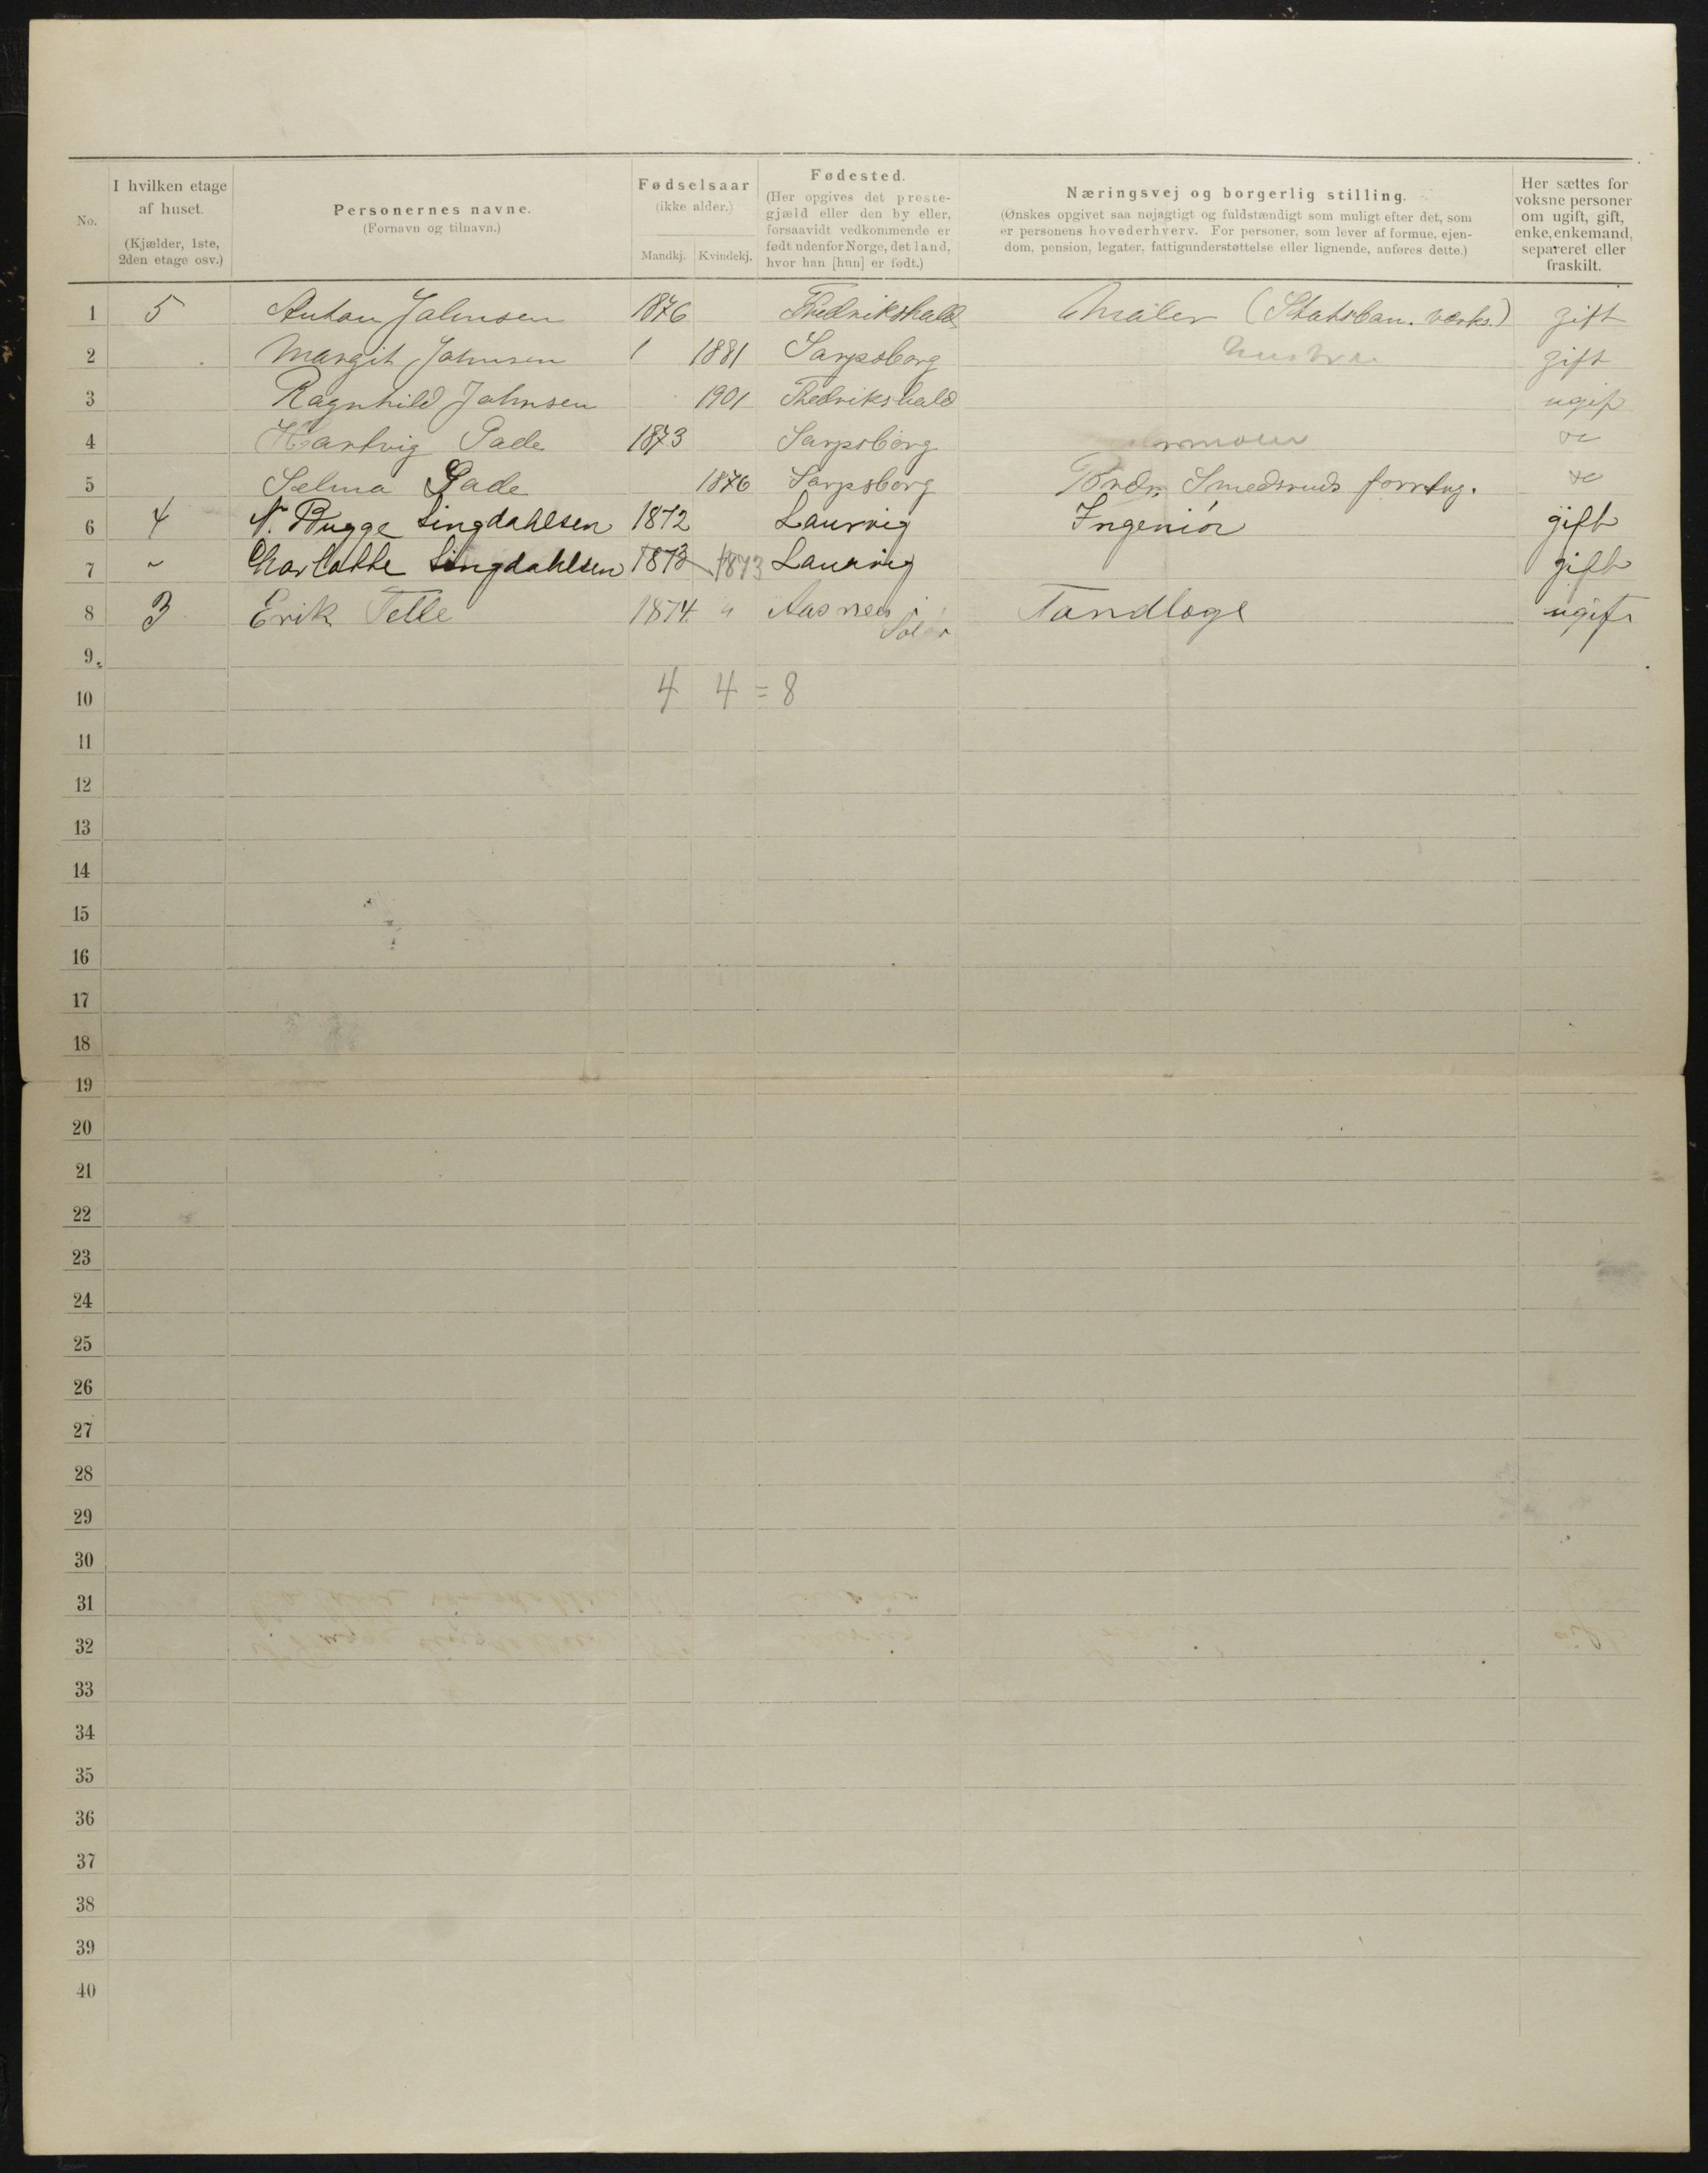 No.
I hvilken etage af huset. (Kjælder, 1ste, 2den etage osv.)
Personernes navne. (Fornavn og tilnavn.)
Fødselsaar (ikke alder.) Mandkj. Kvindekj.
Fødested. (Her opgives det prestegjæld eller den by eller, forsaavidt vedkommende er født udenfor Norge, det land, hvor han [hun] er født.)
Næringsvej og borgerlig stilling. (Ønskes opgivet saa nøjagtigt og fuldstændigt som muligt efter det, som er personens hovederhverv. For personer, som lever af formue, ejendom, pension, legater, fattigunderstøttelse eller lignende, anføres dette.)
Her sættes for voksne personer om ugift, gift, enke, enkemand, separeret eller fraskilt.
1 5 Anton Johnsen 1876 Fredrikshald Maler (Statsban. værks.) gift
2 Margit Johnsen 1 1881 Sarpsborg Hustru gift
3 Ragnhild Johnsen 1901 Fredrikshald ugift
4 Hartvig Gade 1873 Sarpsborg
5 Selma Gade 1876 Sarpsborg Brdr. Smedsruds forrtng.
6 4 N. Bugge Lingdahlsen 1872 Laurvig Ingeniör gift
7 " Charlotte Lingdahlsen 1873 1873 Laurvig gift
8 3 Erik Telle 1874 " Aasnes i Solør Tandlæge ugift
9
10 4 4 = 8
11
12
13
14
15
16
17
18
19
20
21
22
23
24
25
26
27
28
29
30
31
32
33
34
35
36
37
38
39
40